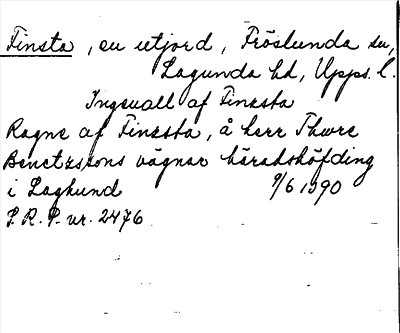 Finsta, en utjord, Fröslunda sn,
Lagunda hd, Upps. l.
Ingeuall af Finzsta
Ragne af Finzsta, å herr Thure
Benctzssons vägnar häradshöfding
i Laghund 9/6 1390
S.R.P. nr. 2476